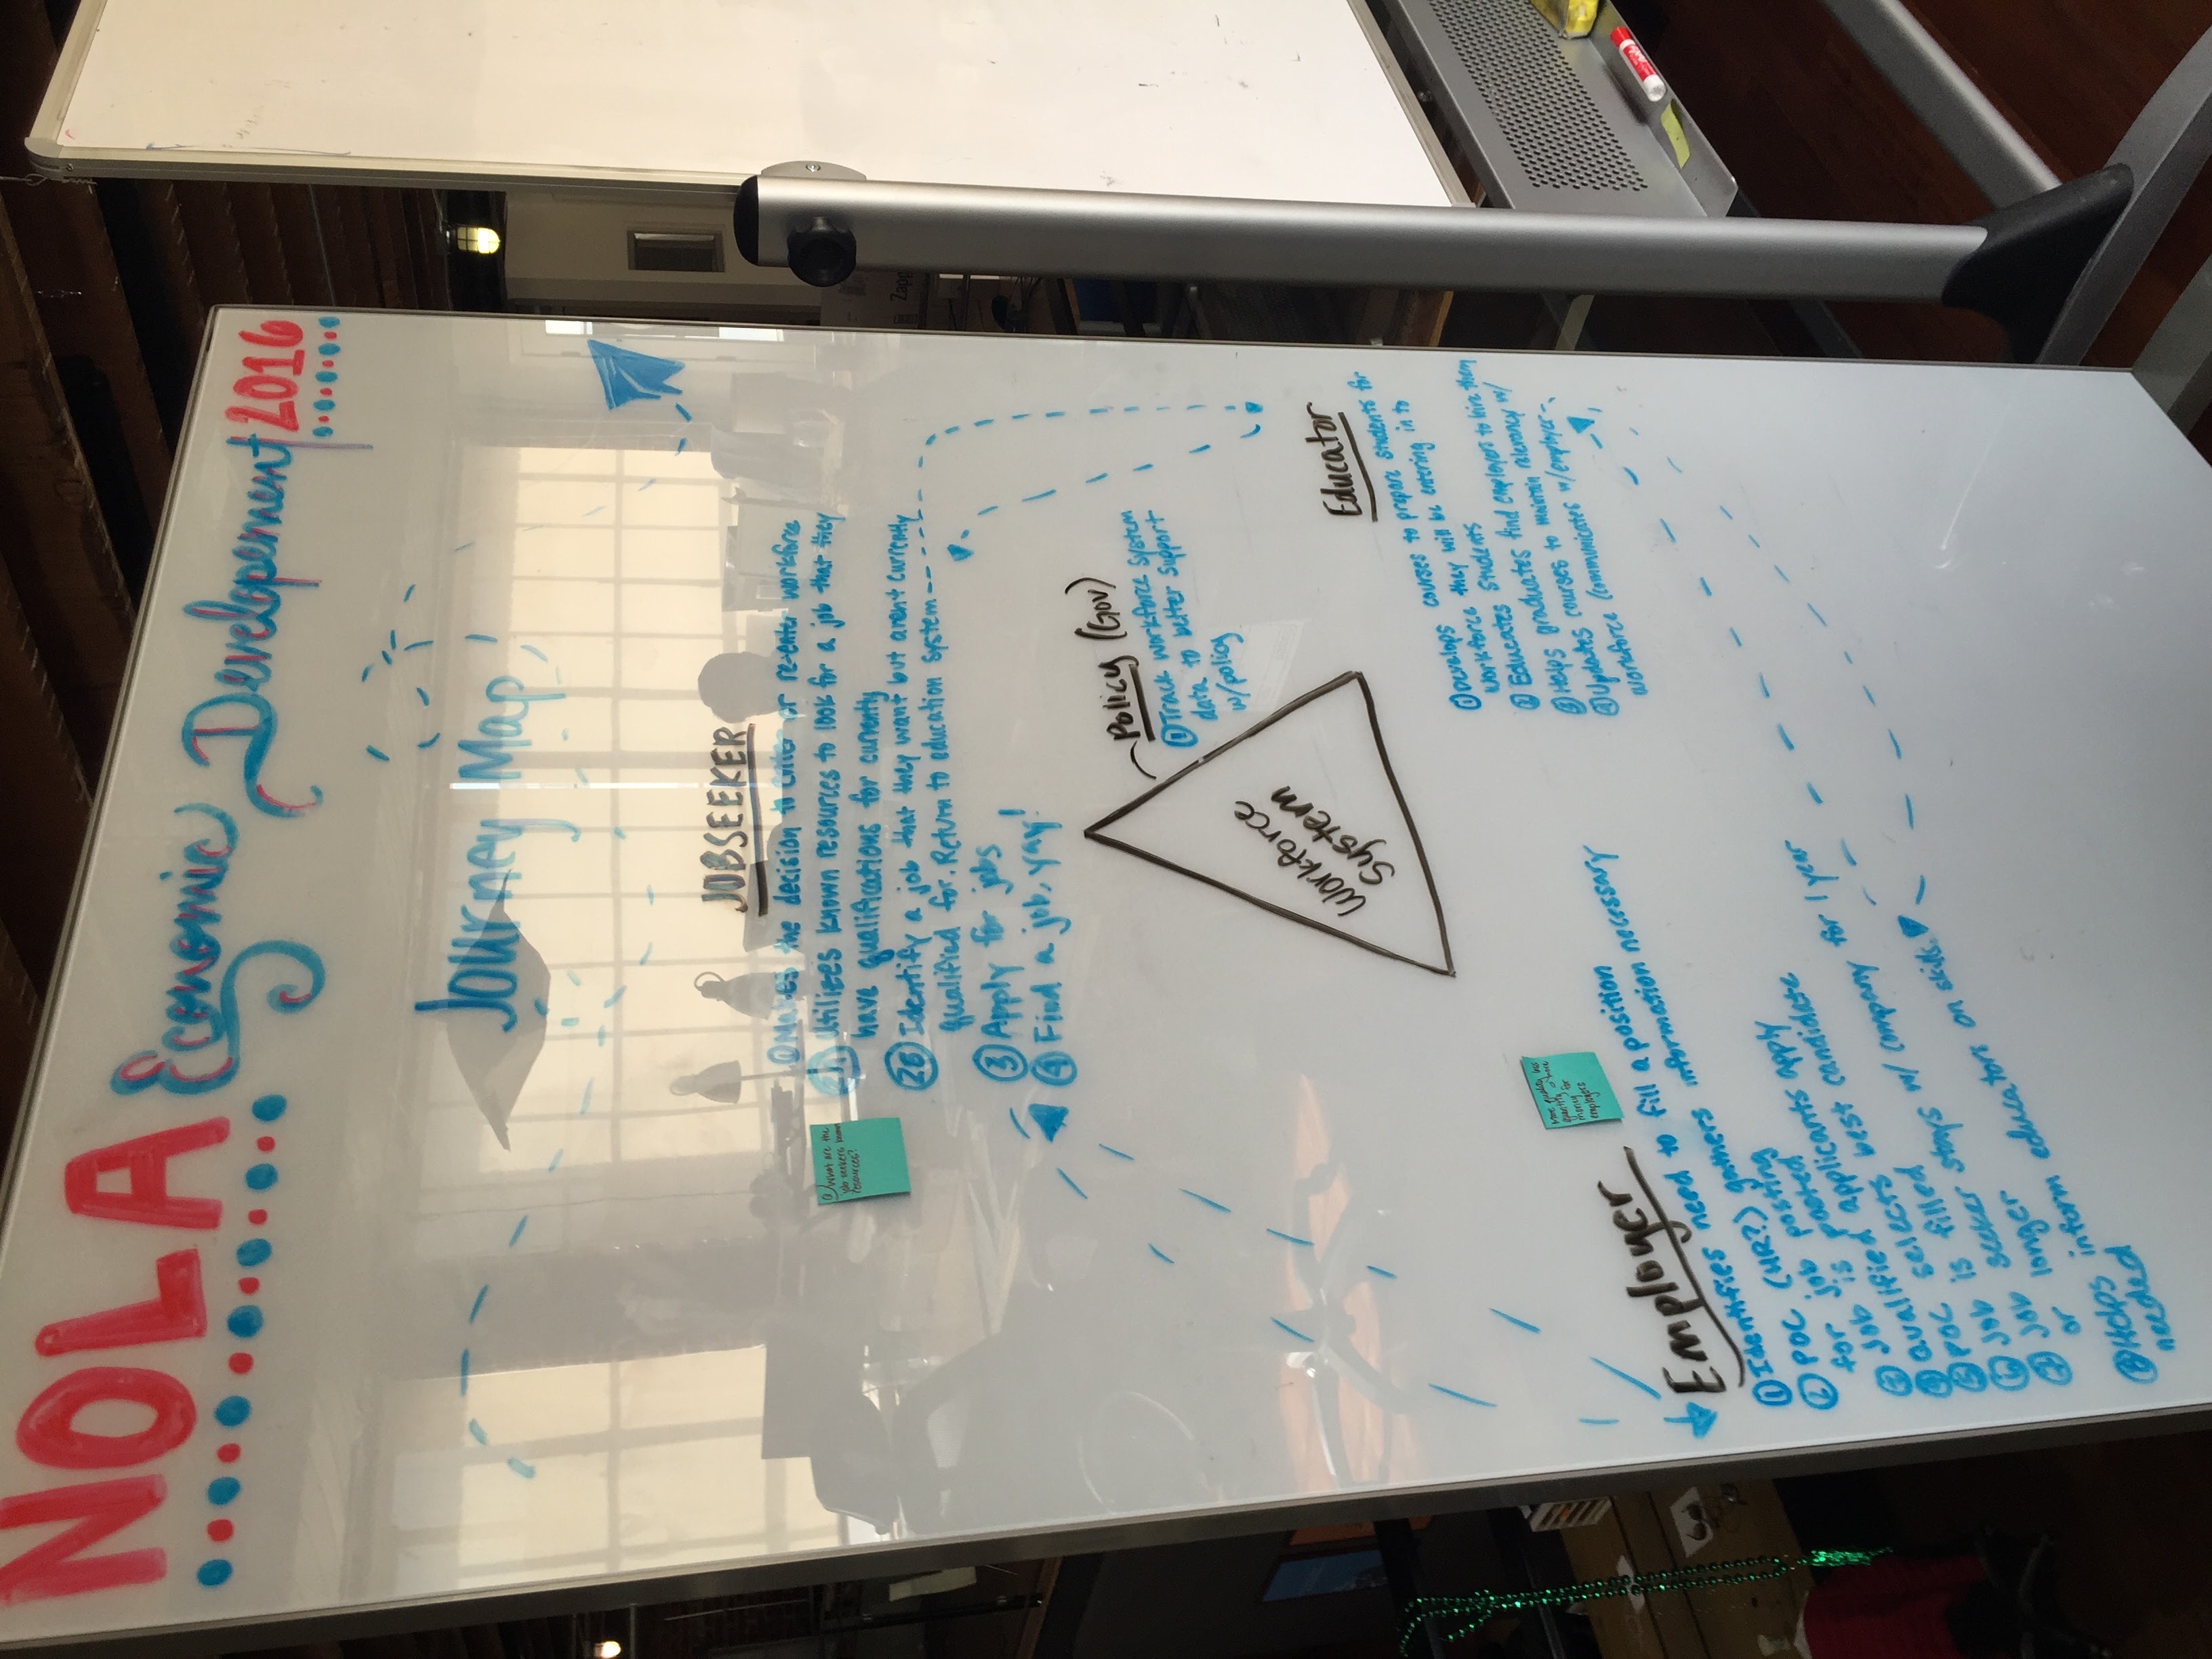 NOLA Economic Developement 2016
Journey Map
JOBSEEKER
① Makes the decision to enter or re-enter workforce
Utilizes known resources to look for a job that they
have qualifications for currently
2B Identify a job that they want but arent currently
qualified for. Return to education system
③ Apply for jobs
④ Find a job, yay!
What are the
job seekers known
resources?
Policy (Gov)
① Track workforce system
data to better support
w/policy
Workforce
System
Educator
① Develops courses to prepare students for
workforce they will be entering in to
② Educates Students
③ Helps graduates find employers to hire them
④ Updates courses to maintain relevancy w/
workforce (communicates w/employer
More quality less
quantity = more
money for
employers
Employer
① Identifies need to fill a position
② POC (HR?) gathers information necessary
for job posting
③ Job is posted
④ qualified applicants apply
⑤ POC selects best candidate
⑥ Job is filled
⑦ Job seeker stays w/ company for 1 year
or longer
⑧ Helps inform educators on skills
needed
Zapp